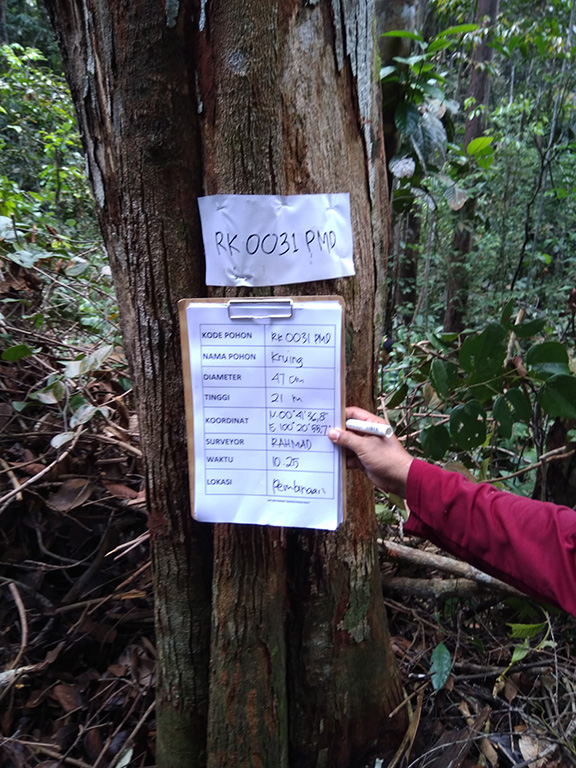 RK 0031 PMD
KODE POHON RK 0031 PMD
NAMA POHON Kruing
DIAMETER 47 cm
TINGGI 21 m
KOORDINAT N.00°41'36,8"
E.100°20'53,7"
SURVEYOR RAHMAD
WAKTU 10.25
LOKASI